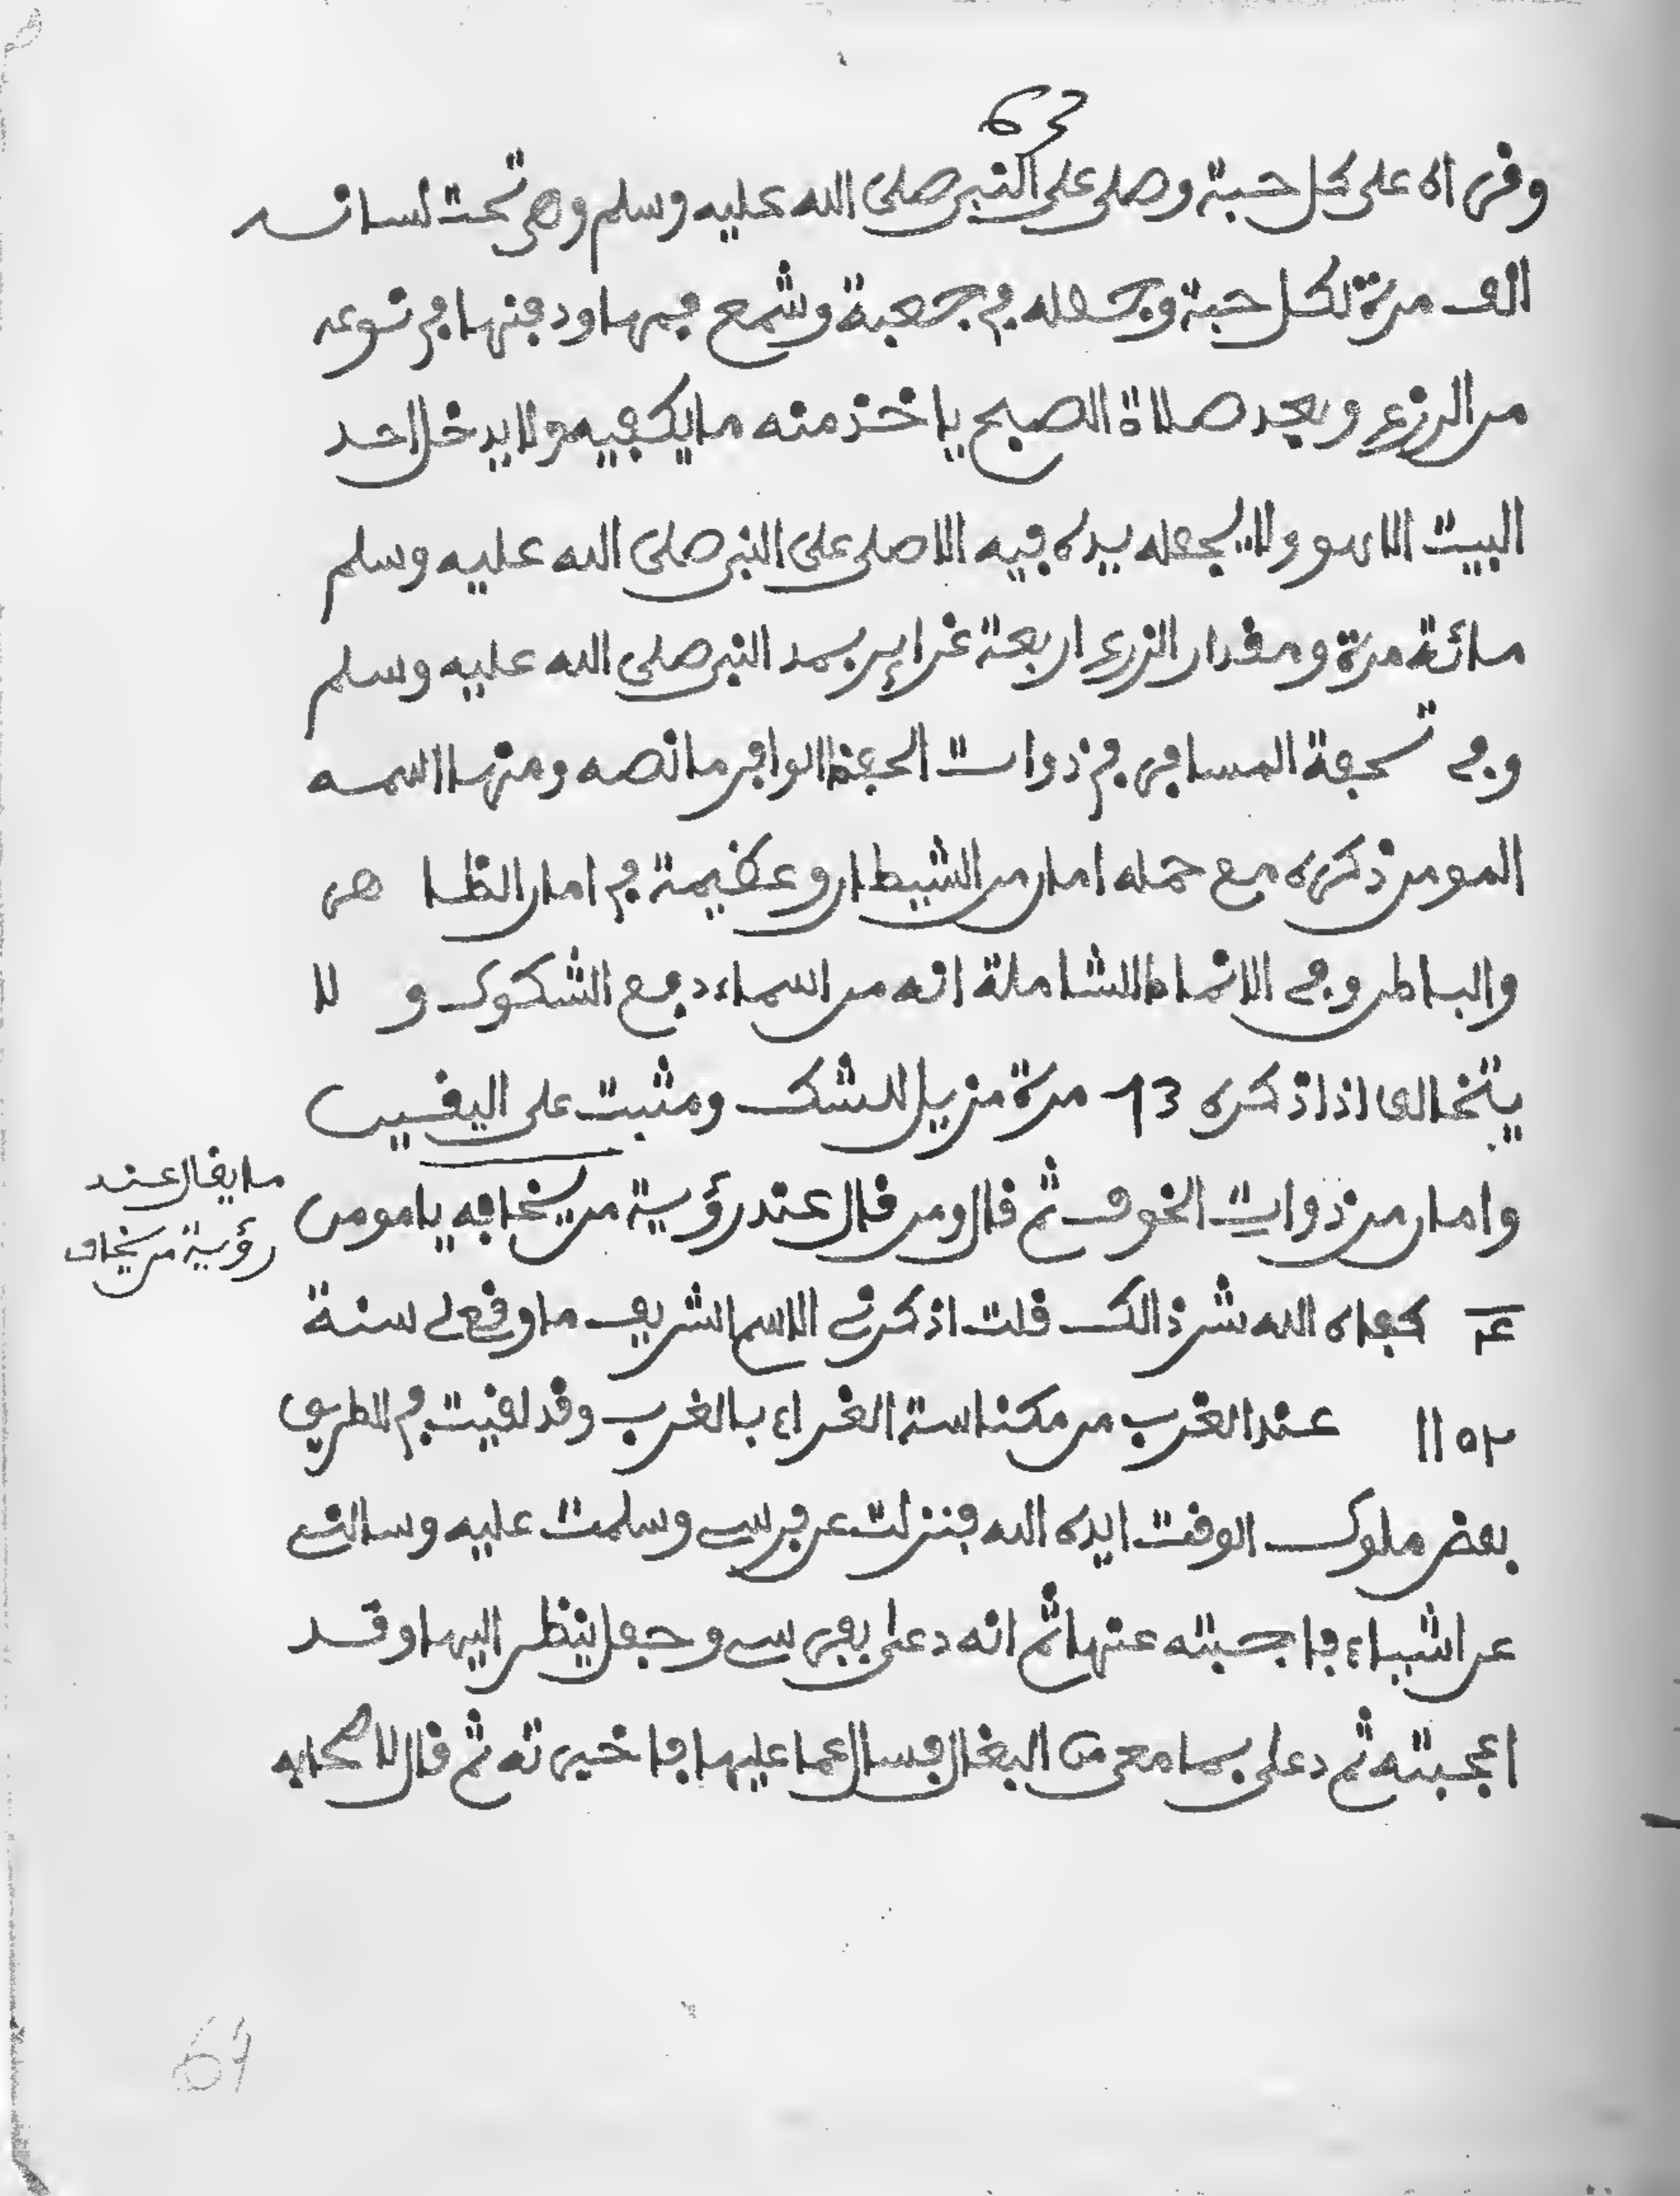 63
وقراه على كل حبة وصلى على النبي صلى الله عليه وسلم وهي تحت لسانه
الف مرة لكل حبة وجعله في جعبة وشمع فمها ودفنها في نوعه
من الزرع وبعد صلاة الصبح ياخذ منه ما يكفيه ولا يدخل احد
البيت الا هو ولا يجعله يده فيه الا صلى على النبي صلى الله عليه وسلم
مائة مرة ومقدار الزرع اربعة غراير بمد النبي صلى الله عليه وسلم
وفي تحفة المسافر في ذوات الحفظ الوافر ما نصه ومنها اسمه
المومن ذكره مع حمله امان من الشيطان وعظيمة في امان الظا هر
والباطن وفي الانماط الشاملة انه من اسماء دفع الشكوك و لا
يتخالف اذا ذكره 13 مرة مزيل للشك ومثبت على اليقين
وامان من ذوات الخوف ثم قال ومن قال عند رؤية من يخافه يا مومن
ما يقال عند
رؤية من يخاف
كفاه الله شر ذالك قلت اذكرني الاسم الشريف ما وقع لي سنة
عند الغرب من مكناسة الغراء بالغرب وقد لقيت في الطريق
بعض ملوك الوقت ايده الله فنزلت عن فرسي وسلمت عليه وسالني
عن اشياء فاجبته عنها ثم انه دعى بفرسي وجعل ينظر اليها وقد
اعجبته ثم دعى بما معي من البغال فسال عما عليها فاخبرته ثم قال لاصحابه
64